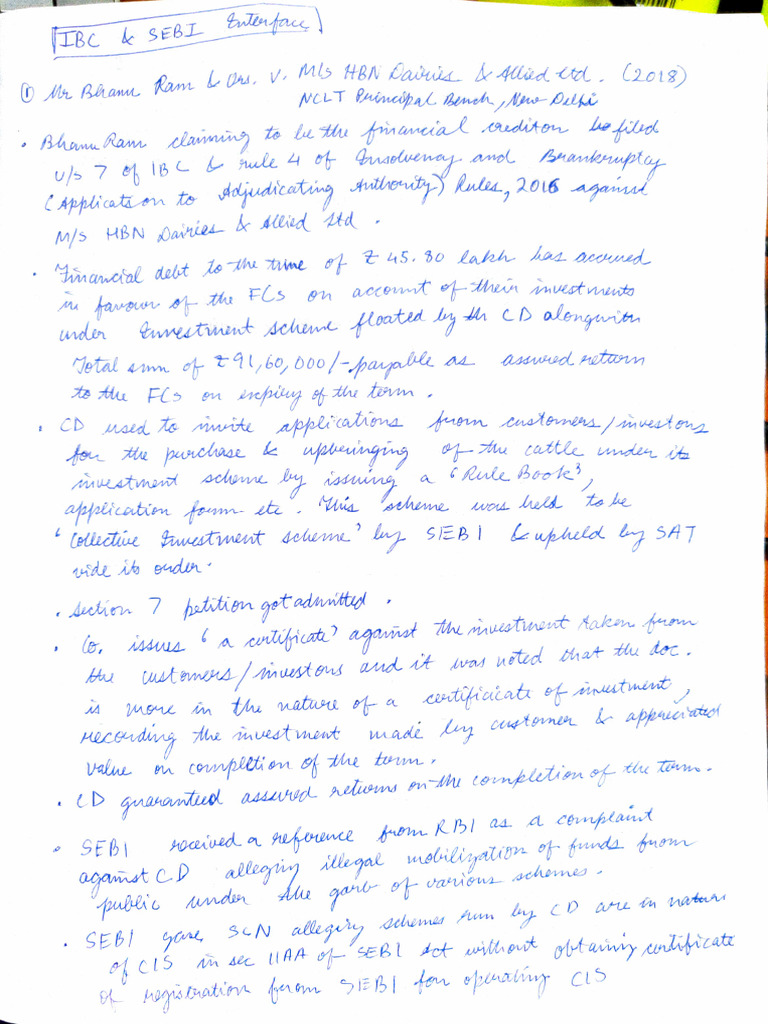 IBC & SEBI Interface
① Mr Bhanu Ram & Ors. V. M/s HBN Dairies & Allied Ltd. (2018)
NCLT Principal Bench, New Delhi
• Bhanu Ram claiming to be the financial creditor filed
u/s 7 of IBC & rule 4 of Insolvency and Brankruptcy
(Application to Adjudicating Authority) Rules, 2016 against
M/s HBN Dairies & Allied Ltd.
• Financial debt to the tune of ₹ 45.80 lakh has accrued
in favour of the FCs on account of their investments
under Investment scheme floated by the CD alongwith
Total sum of ₹ 91,60,000/- payable as assured return
to the FCs on expiry of the term.
• CD used to invite applications from customers/investors
for the purchase & upbringing of the cattle under its
investment scheme by issuing a 'Rule Book',
application form etc. This scheme was held to be
'Collective Investment scheme' by SEBI & upheld by SAT
vide its order.
• Section 7 petition got admitted.
• Co. issues 'a certificate' against the investment taken from
the customers/investors and it was noted that the doc.
is more in the nature of a certificicate of investment,
recording the investment made by customer & appreciated
value on completion of the term.
• CD guaranteed assured returns on the completion of the term.
• SEBI received a reference from RBI as a complaint
against CD alleging illegal mobilization of funds from
public under the garb of various schemes.
• SEBI gave SCN alleging schemes run by CD are in nature
of CIS in sec 11AA of SEBI Act without obtaining certificate
of registration from SEBI for operating CIS